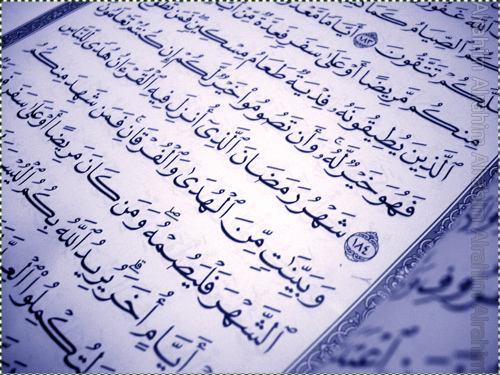 ٱلصِّيَامُ كَمَا
تَتَّقُونَ ١٨٣ أَيَّامًا
مِنكُم مَّرِيضًا أَوْ عَلَىٰ سَفَرٍ فَعِدَّةٌ مِّنْ
ٱلَّذِينَ يُطِيقُونَهُۥ فِدْيَةٌ طَعَامُ مِسْكِينٍ فَمَن
فَهُوَ خَيْرٌ لَّهُۥ وَأَن تَصُومُوا۟ خَيْرٌ لَّكُمْ إِن كُنتُمْ تَعْلَمُونَ
١٨٤ شَهْرُ رَمَضَانَ ٱلَّذِىٓ أُنزِلَ فِيهِ ٱلْقُرْءَانُ هُدًى لِّلنَّاسِ
وَبَيِّنَٰتٍ مِّنَ ٱلْهُدَىٰ وَٱلْفُرْقَانِ فَمَن شَهِدَ مِنكُمُ
ٱلشَّهْرَ فَلْيَصُمْهُ وَمَن كَانَ مَرِيضًا أَوْ عَلَىٰ سَفَرٍ
أَيَّامٍ أُخَرَ يُرِيدُ ٱللَّهُ بِكُمُ
وَلِتُكْمِلُوا۟